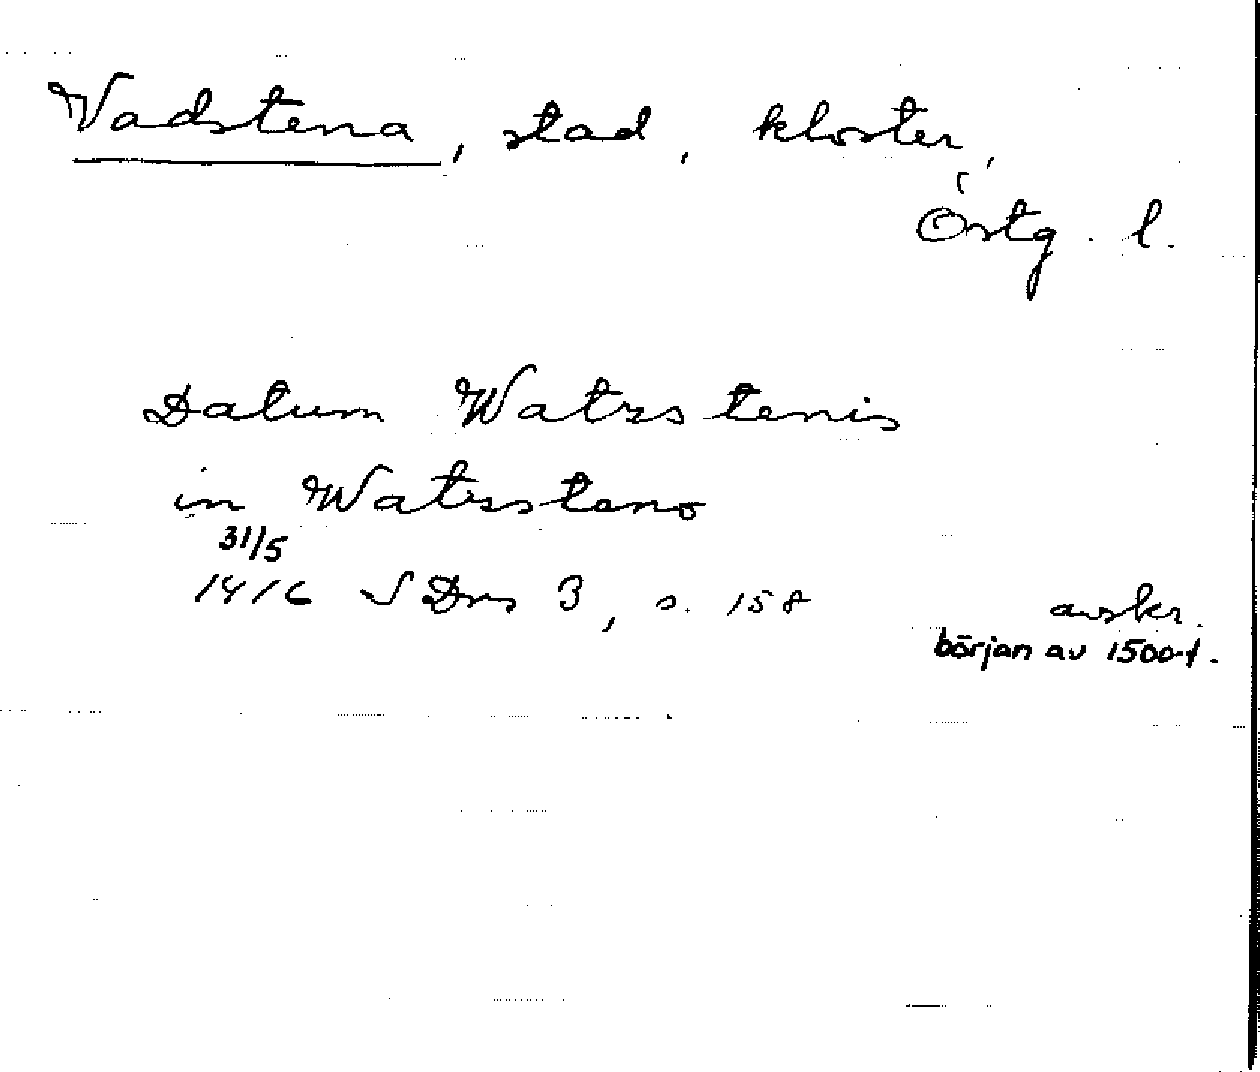 Vadstena, stad, kloster,
Östg. l.
Datum Watzstenis
in Watzsteno
31/5
1416 SDns 3, s. 158 avskr.
början av 1500-t.